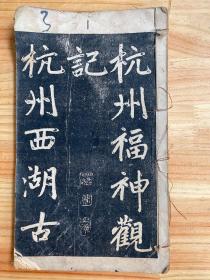 3
1
杭州福神觀
記
杭州西湖古